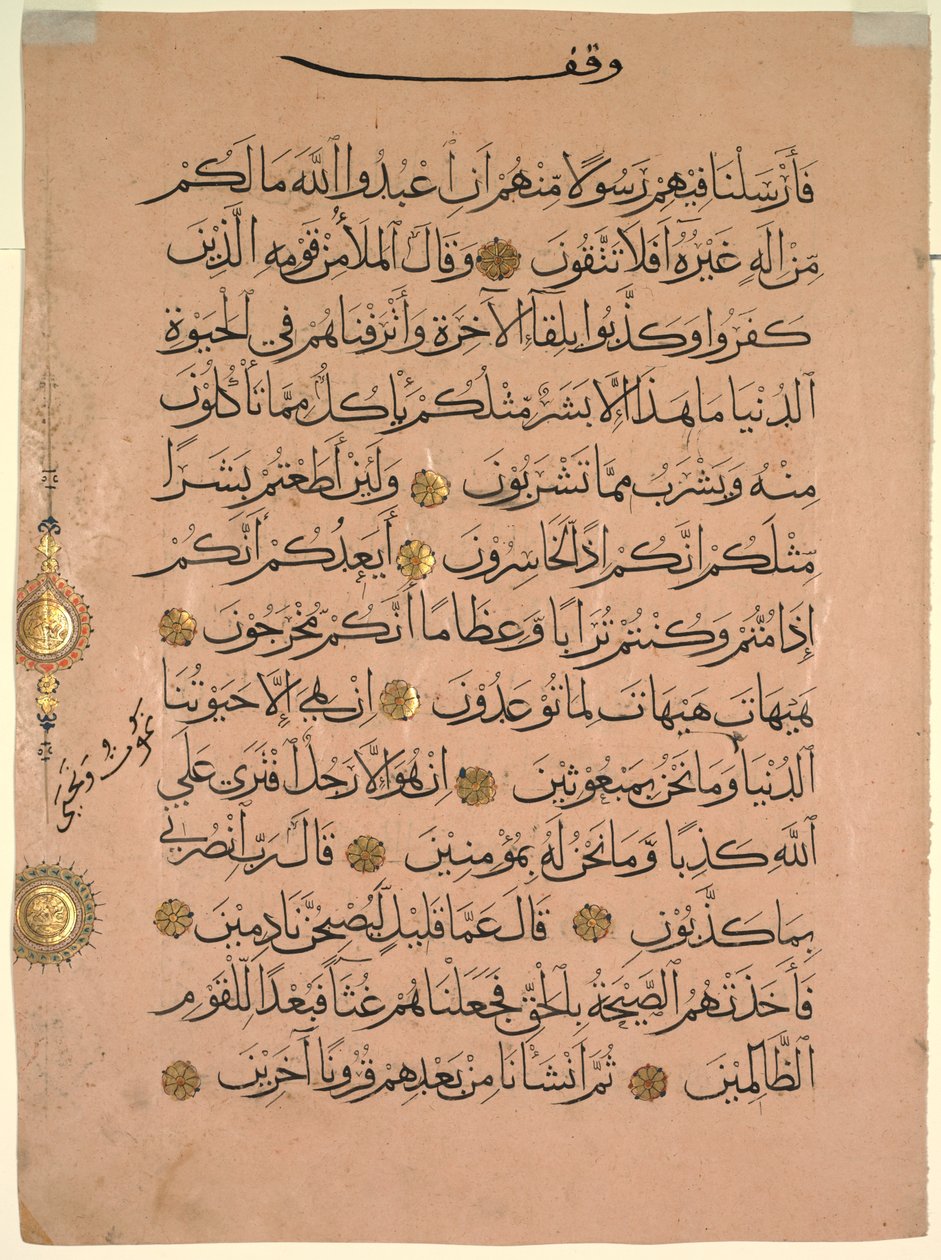 وقف
فَأَرْسَلْنَا فِيْهِمْ رَسُوْلًا مِّنْهُمْ اَنِ ٱعْبُدُوا ٱللَّهَ مَا لَكُمْ
مِّنْ اِلَهٍ غَيْرُهُ اَفَلَا تَتَّقُونَ وَقَالَ ٱلْمَلَأُ مِنْ قَوْمِهِ الَّذِيْنَ
كَفَرُوا وَكَذَّبُوا بِلِقَآءِ الْآخِرَةِ وَأَتْرَفْنَاهُمْ فِي ٱلْحَيٰوةِ
ٱلدُّنْيَا مَا هَذَا اِلَّا بَشَرٌ مِّثْلُكُمْ يَأْكُلُ مِمَّا تَأْكُلُوْنَ
مِنْهُ وَيَشْرَبُ مِمَّا تَشْرَبُوْنَ وَلَئِنْ أَطَعْتُمْ بَشَرًا
مِّثْلَكُمْ اِنَّكُمْ اِذًا لَّخَاسِرُوْنَ أَيَعِدُكُمْ أَنَّكُمْ
إِذَا مُتُّمْ وَكُنْتُمْ تُرَابًا وَّعِظَامًا أَنَّكُمْ مُّخْرَجُوْنَ
هَيْهَاتَ هَيْهَاتَ لِمَا تُوْعَدُوْنَ اِنْ هِيَ اِلَّا حَيٰوتُنَا
ٱلدُّنْيَا وَمَا نَحْنُ بِمَبْعُوْثِيْنَ اِنْ هُوَ اِلَّا رَجُلٌ ٱفْتَرَىٰ عَلَي
نموت ونحيى
ٱللَّهِ كَذِبًا وَّمَا نَحْنُ لَهُ بِمُؤْمِنِيْنَ قَالَ رَبِّ ٱنْصُرْنِي
بِمَا كَذَّبُوْنِ قَالَ عَمَّا قَلِيْلٍ لَّيُصْبِحُنَّ نَادِمِيْنَ
فَأَخَذَتْهُمُ ٱلصَّيْحَةُ بِٱلْحَقِّ فَجَعَلْنَاهُمْ غُثَآءً فَبُعْدًا لِّلْقَوْمِ
ٱلظَّالِمِيْنَ ثُمَّ اَنْشَأْنَا مِنْ بَعْدِهِمْ قُرُوْنًا آخَرِيْنَ